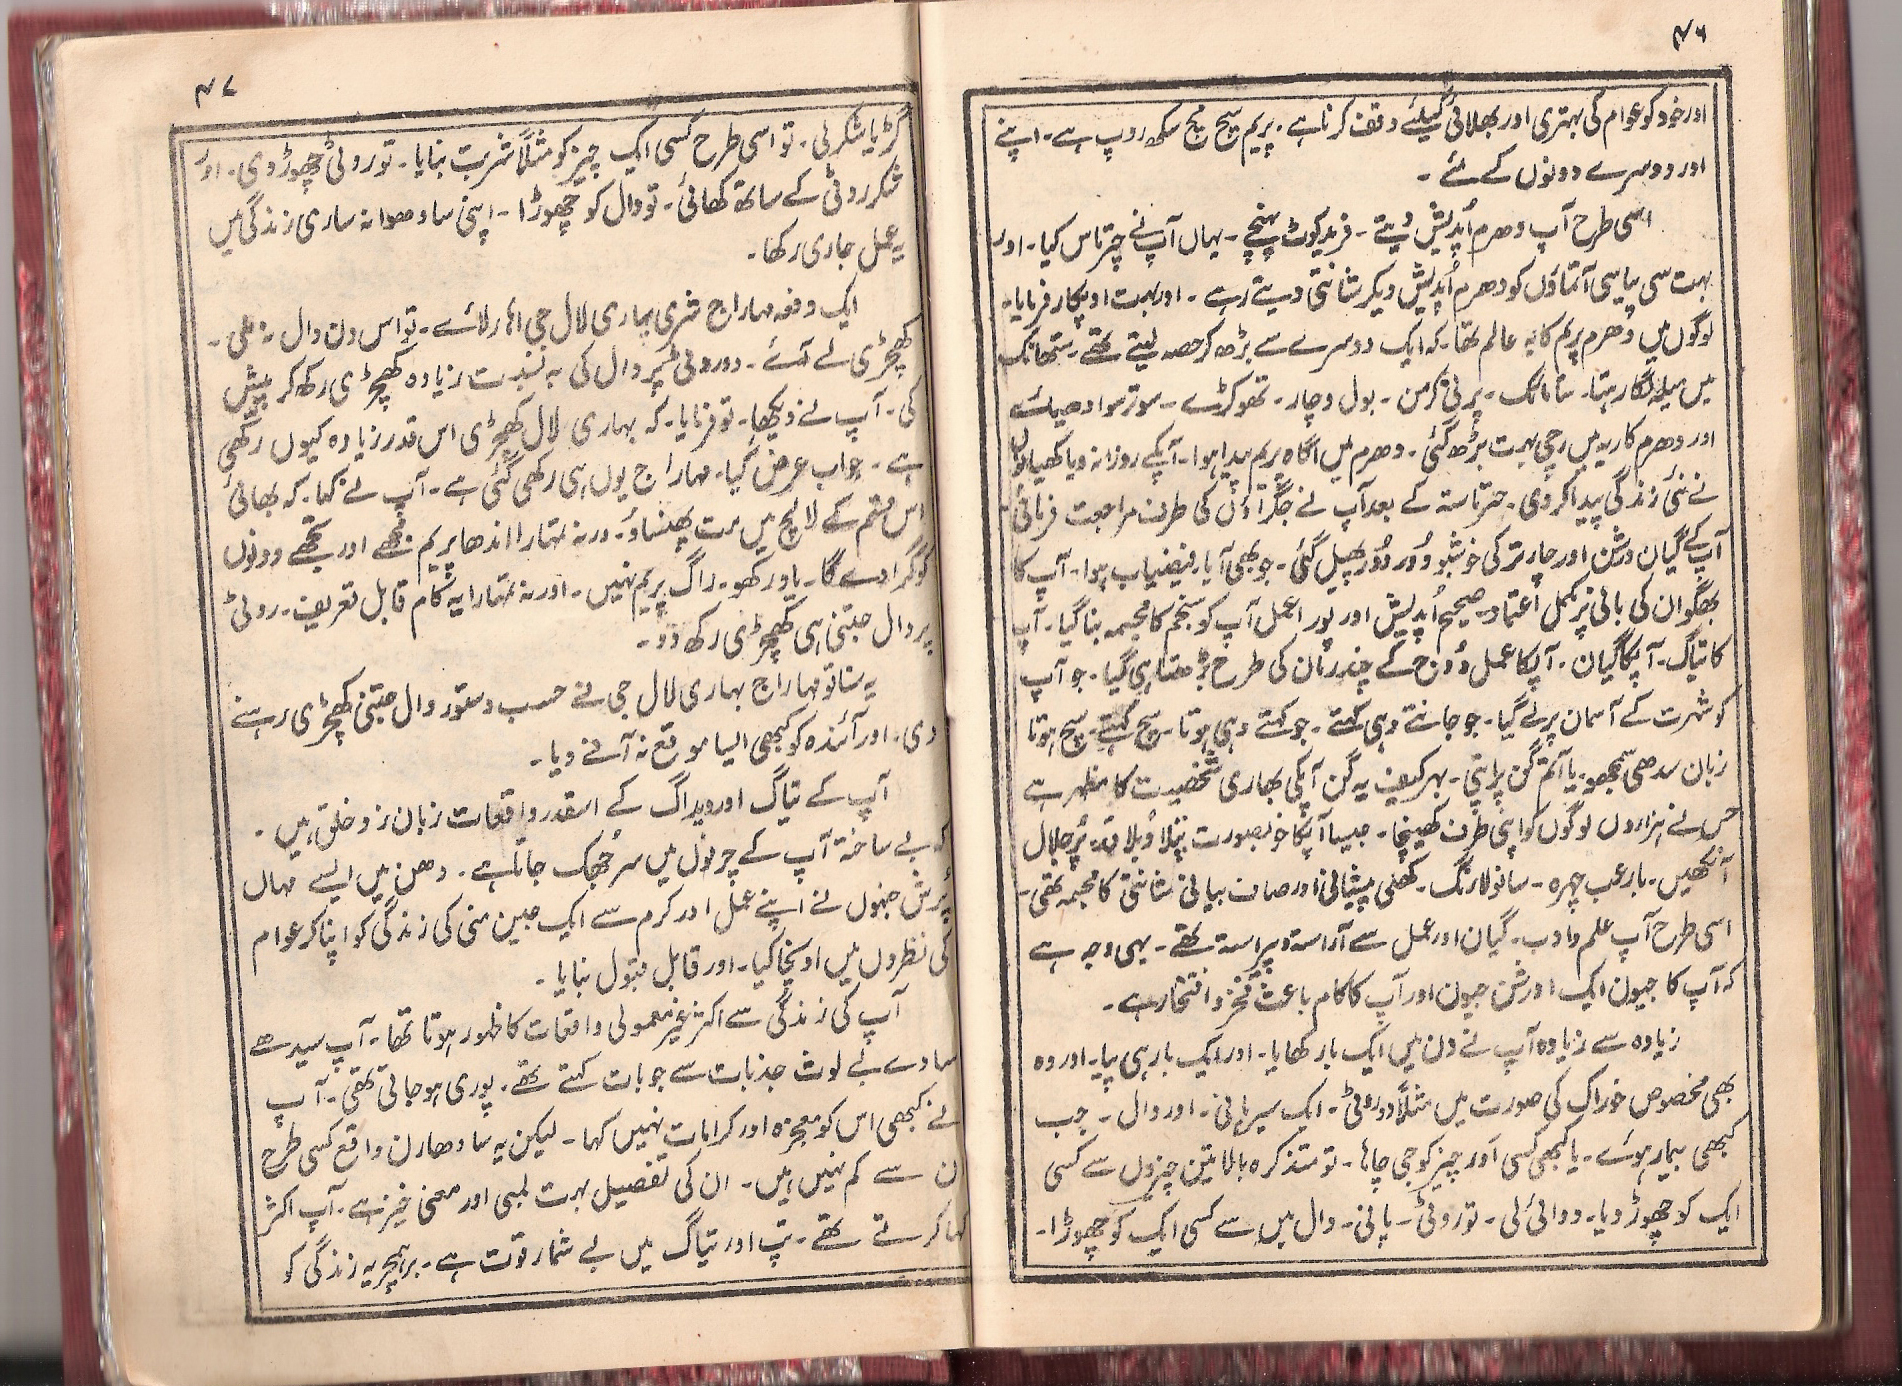 ۴۶
اور خود کو عوام کی بہتری اور بھلائی کیلئے وقف کرنا ہے۔ پریم سچ مچ سکھ روپ ہے۔ اپنے
اور دوسرے دونوں کے لئے۔
اسی طرح آپ دھرم اُپدیش دیتے۔ فریدکوٹ پہنچے۔ یہاں آپ نے چترماس کیا۔ اور
بہت سی پیاسی آتماؤں کو دھرم اُپدیش دیکر شانتی دیتے رہے۔ اور بہت اوپکار فرمایا۔
لوگوں میں دھرم پریم کا یہ عالم تھا۔ کہ ایک دوسرے سے بڑھ کر حصہ لیتے تھے۔ ستھانک
میں میلہ لگا رہتا۔ سامائک۔ پرتی کرمن۔ بول وچار۔ تھوکڑے۔ سوتر سوادھیائے
اور دھرم کاریہ میں رچی بہت بڑھ گئی۔ دھرم میں اگاہ پریم پیدا ہوا۔ آپکے روزانہ ویاکھیانوں
نے نئی زندگی پیدا کر دی۔ چترماسہ کے بعد آپ نے جگراؤں کی طرف مراجعت فرمائی۔
آپ کے گیان درشن اور چارتر کی خوشبو دُور دُور پھیل گئی۔ جو بھی آیا۔ فیضیاب ہوا۔ آپ کا
بھگوان کی بانی پر مکمل اعتماد۔ صحیح اُپدیش اور پورا عمل آپ کو سنجم کا مجسمہ بنا گیا۔ آپ
کا تیاگ۔ آپکا گیان۔ آپکا عمل دُوج کے چندرمان کی طرح بڑھتا ہی گیا۔ جو آپ
کو شہرت کے آسمان پر لے گیا۔ جو جانتے وہی کہتے۔ جو کہتے وہی ہوتا۔ سچ کہتے۔ سچ ہوتا
زبان سدھی سمجھو۔ یا آتم گن پراپتی۔ بہر کیف یہ گن آپکی بھاری شخصیت کا مظہر ہے
جس نے ہزاروں لوگوں کو اپنی طرف کھینچا۔ جیسا آپکا خوبصورت پتلا دُبلا قد۔ پُر جلال
آنکھیں۔ بارعب چہرہ۔ سانولا رنگ۔ کھلی پیشانی اور صاف بیانی شانتی کا مجسمہ تھی۔
اسی طرح آپ علم و ادب۔ گیان اور عمل سے آراستہ و پیراستہ تھے۔ یہی وجہ ہے
کہ آپ کا جیون ایک اورشن جیون اور آپ کا کام باعث فخر و افتخار ہے۔
زیادہ سے زیادہ آپ نے دن میں ایک بار کھایا۔ اور ایک بار ہی پیا۔ اور وہ
بھی مخصوص خوراک کی صورت میں مثلاً دو روٹی۔ ایک سیر پانی۔ اور دال۔ جب
کبھی بیمار ہوئے۔ یا کبھی کسی اور چیز کو جی چاہا۔ تو متذکرہ بالا تین چیزوں سے کسی
ایک کو چھوڑ دیا۔ دوائی لی۔ تو روٹی۔ پانی۔ دال میں سے کسی ایک کو چھوڑا۔
۴۷
گُڑ یا شکر لی۔ تو اسی طرح کسی ایک چیز کو مثلاً شربت بنایا۔ تو روٹی چھوڑ دی۔ اور
شکر روٹی کے ساتھ کھائی۔ تو دال کو چھوڑا۔ اپنی سادھوانہ ساری زندگی میں
یہ عمل جاری رکھا۔
ایک دفعہ مہاراج شری بہاری لال جی اہار لائے۔ تو اس دن دال نہ ملی۔
کھچڑی لے آئے۔ دو روٹی پر دال کی بہ نسبت زیادہ کھچڑی رکھ کر پیش
کی۔ آپ نے دیکھا۔ تو فرمایا۔ کہ بہاری لال کھچڑی اس قدر زیادہ کیوں رکھی
ہے۔ جواب عرض کیا۔ مہاراج یوں ہی رکھی گئی ہے۔ آپ نے کہا۔ کہ بھائی
اس قسم کے لالچ میں مت پھنساؤ۔ ورنہ تمہارا اندھا پریم مجھے اور تجھے دونوں
کو گرا دے گا۔ یاد رکھو۔ راگ پریم نہیں۔ اور نہ تمہارا یہ کام قابل تعریف۔ روٹی
پر دال جتنی ہی کھچڑی رکھ دو۔
یہ سنا تو مہاراج بہاری لال جی نے حسب دستور دال جتنی کھچڑی رہنے
دی۔ اور آئندہ کو کبھی ایسا موقع نہ آنے دیا۔
آپ کے تیاگ اور ویراگ کے اسقدر واقعات زبان زد خلق ہیں۔
کہ بے ساختہ آپ کے چرنوں میں سر جھک جاتا ہے۔ دھن ہیں ایسے مہاں
پُرش جنہوں نے اپنے عمل اور کرم سے ایک جین منی کی زندگی کو اپنا کر عوام
کی نظروں میں اونچا کیا۔ اور قابل قبول بنایا۔
آپ کی زندگی سے اکثر غیر معمولی واقعات کا ظہور ہوتا تھا۔ آپ سیدھے
سادے بے لوث جذبات سے جو بات کہتے تھے۔ پوری ہو جاتی تھی۔ آپ
نے کبھی اس کو معجزہ اور کرامات نہیں کہا۔ لیکن یہ سادھارن واقع کسی طرح
ان سے کم نہیں ہیں۔ ان کی تفصیل بہت لمبی اور معنی خیز ہے۔ آپ اکثر
کہا کرتے تھے۔ تپ اور تیاگ میں بے شمار قوت ہے۔ برہمچریہ زندگی کو